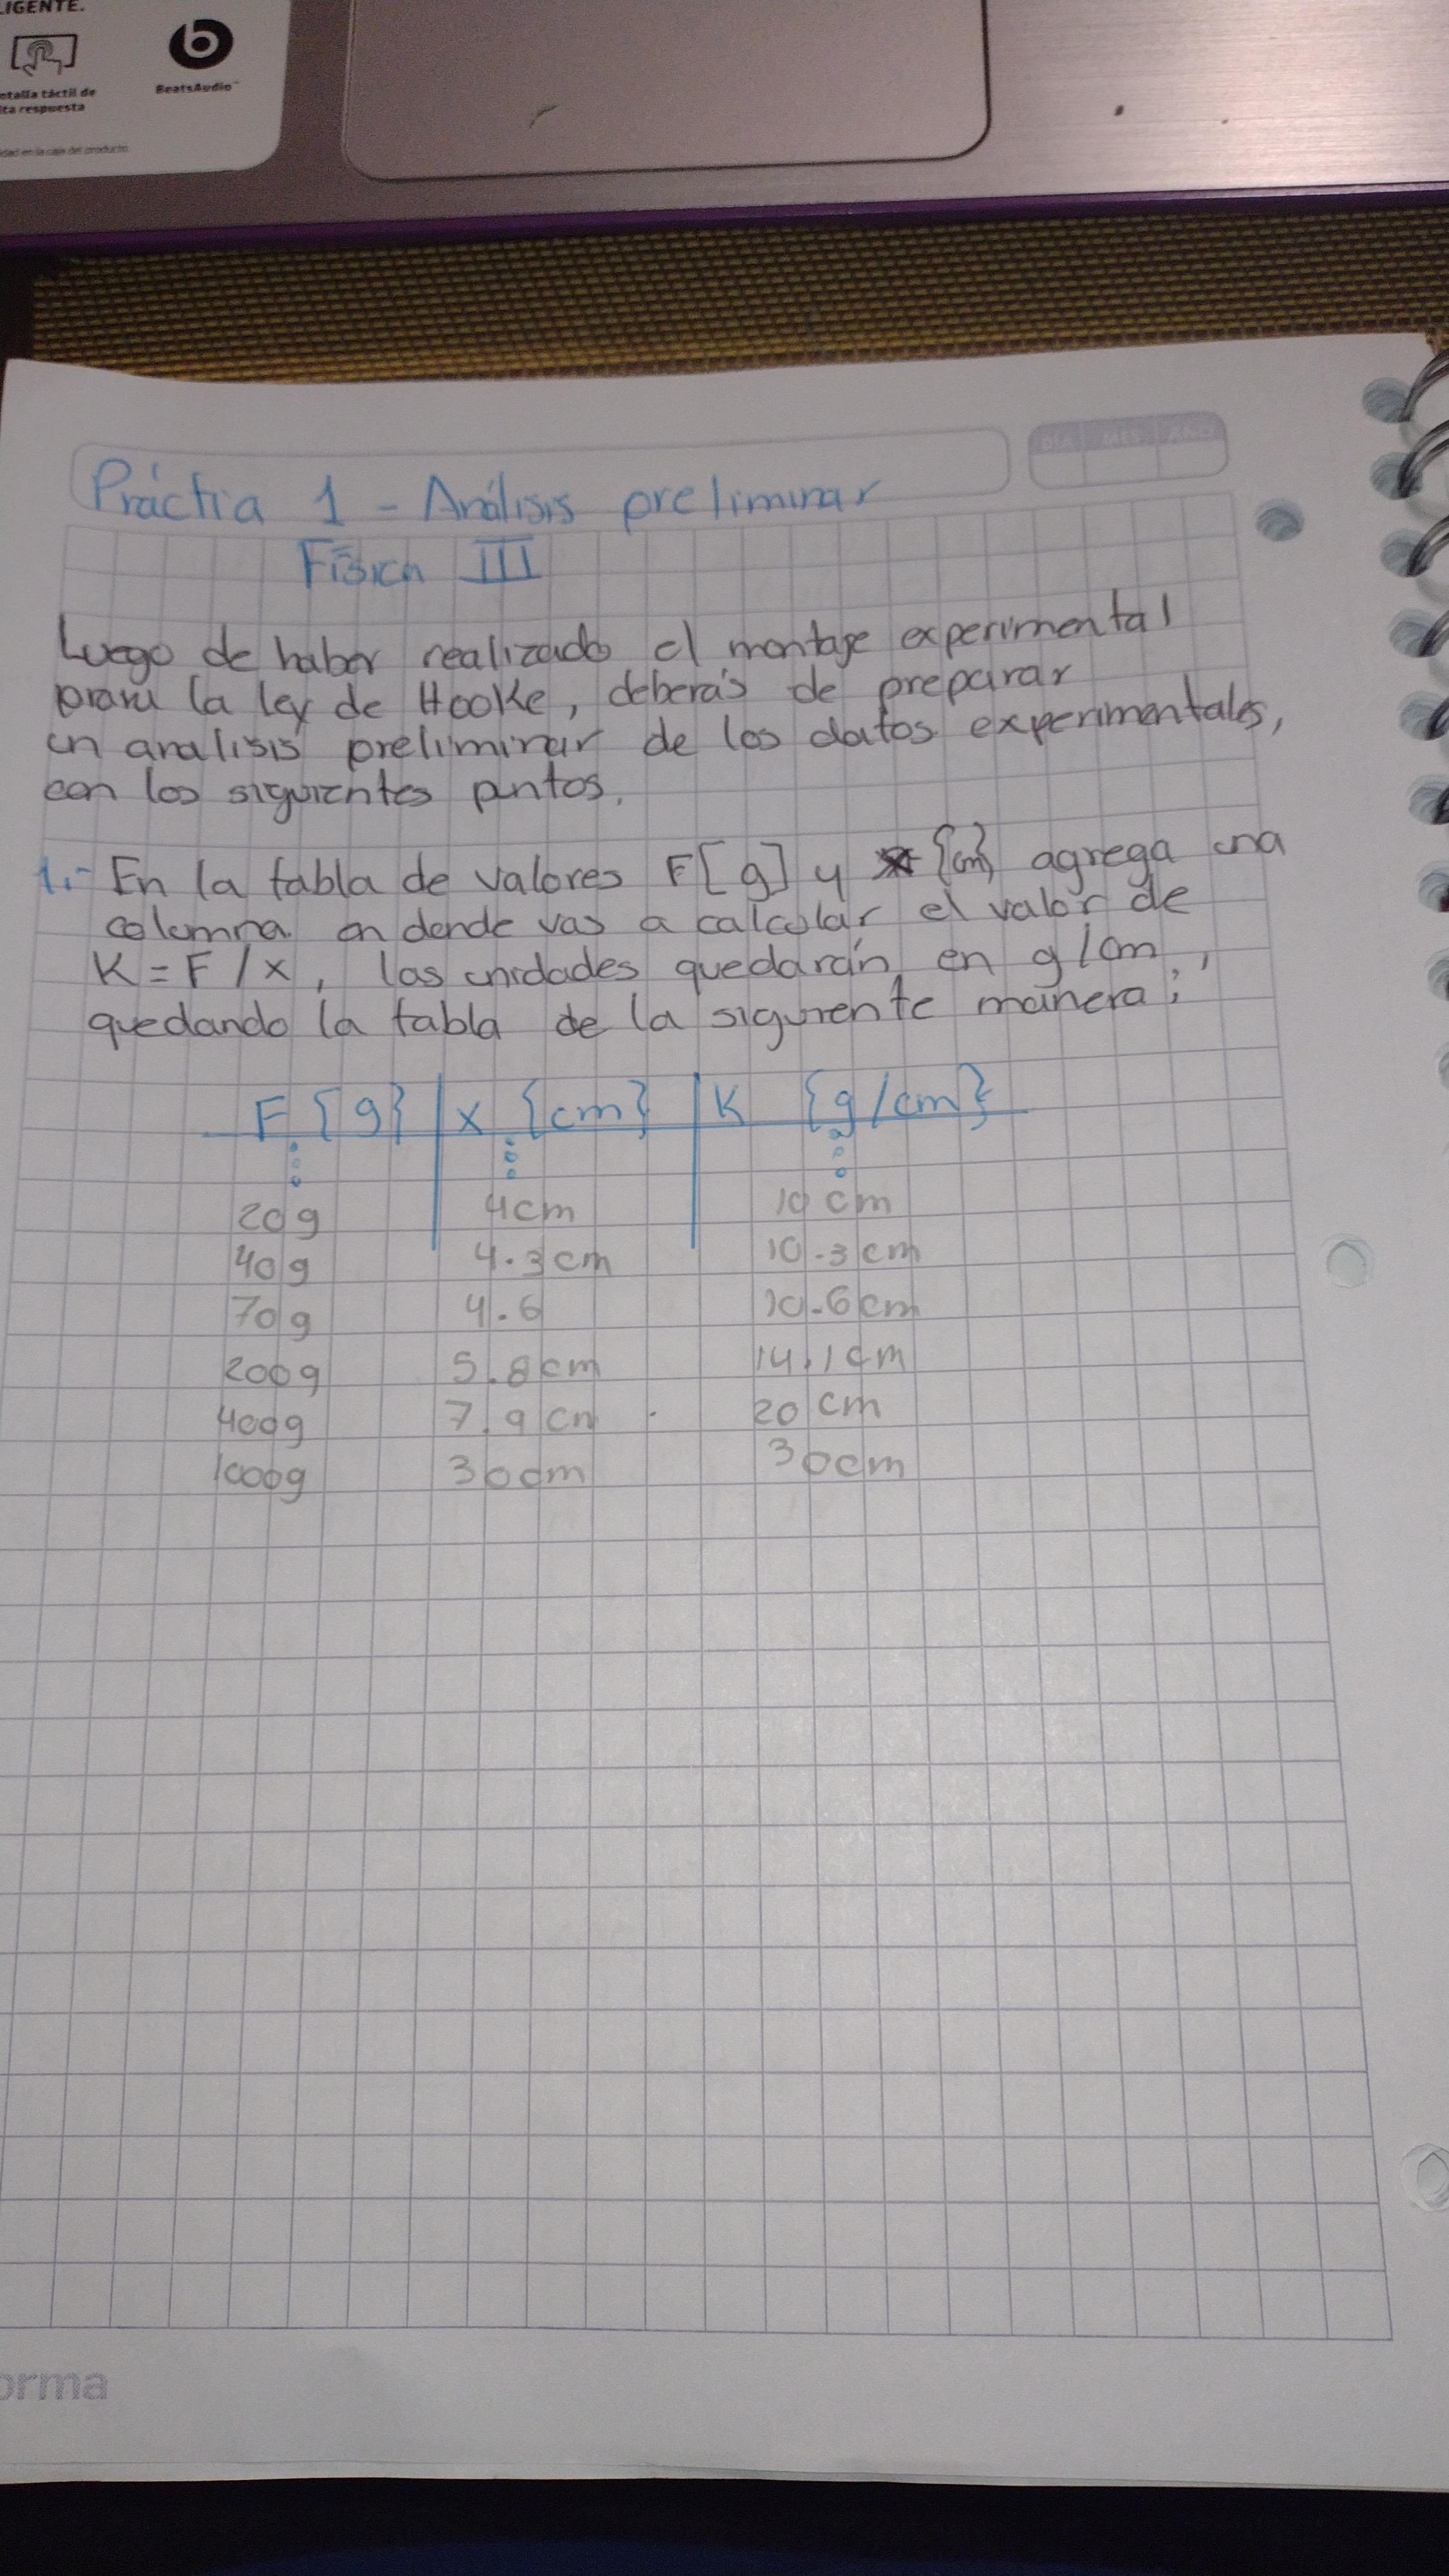 LIGENTE.
ntalla táctil de
lta respuesta
BeatsAudio™
idad en la caja del producto.
DIA MES AÑO
Práctia 1 - Análisis preliminar
Física III
Luego de haber realizado el montaje experimental
para la ley de Hooke, deberás de preparar
un analisis preliminar de los datos experimentales,
con los siguientes puntos.
1.- En la tabla de valores F[g] y {cm} agrega una
columna en donde vas a calcular el valor de
K = F/x, las unidades quedarán en g/cm,
quedando la tabla de la siguiente manera:
F {g} | x {cm} | K {g/cm}
20g 4cm 10 cm
40g 4.3cm 10.3cm
70g 4.6 10.6cm
200g 5.8cm 14.1cm
400g 7.9cm 20 cm
1000g 30cm 30cm
orma